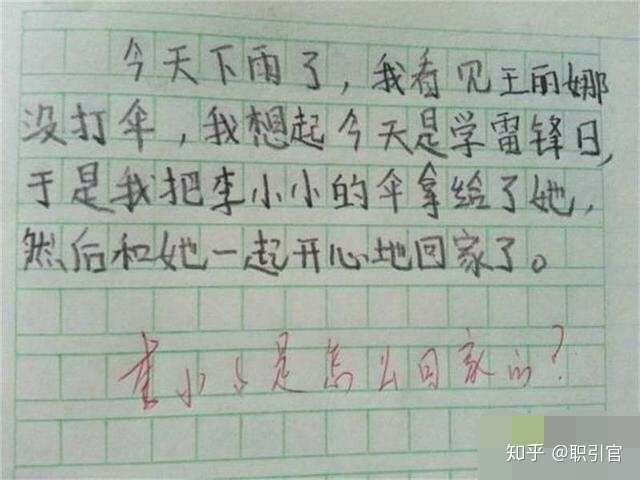 今天下雨了，我看见王丽娜
没打伞，我想起今天是学雷锋日，
于是我把李小小的伞拿给了她，
然后和她一起开心地回家了。
李小小是怎么回家的？
知乎 @职引官